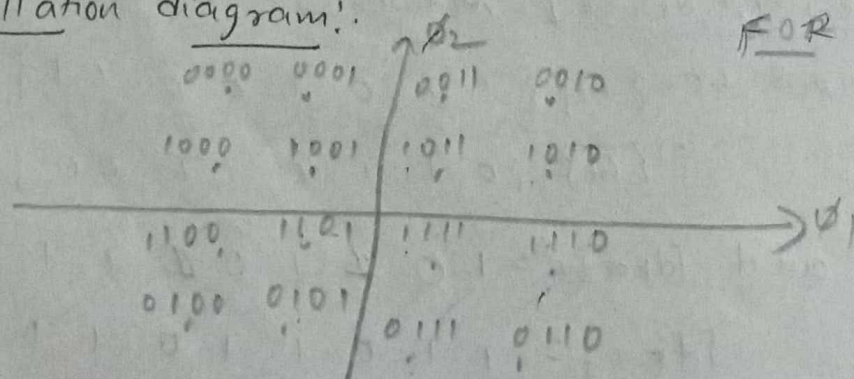 llation diagram:.
FOR
ϕ2
0000 0001 0011 0010
1000 1001 1011 1010
ϕ1
1100 1101 1111 1110
0100 0101 0111 0110